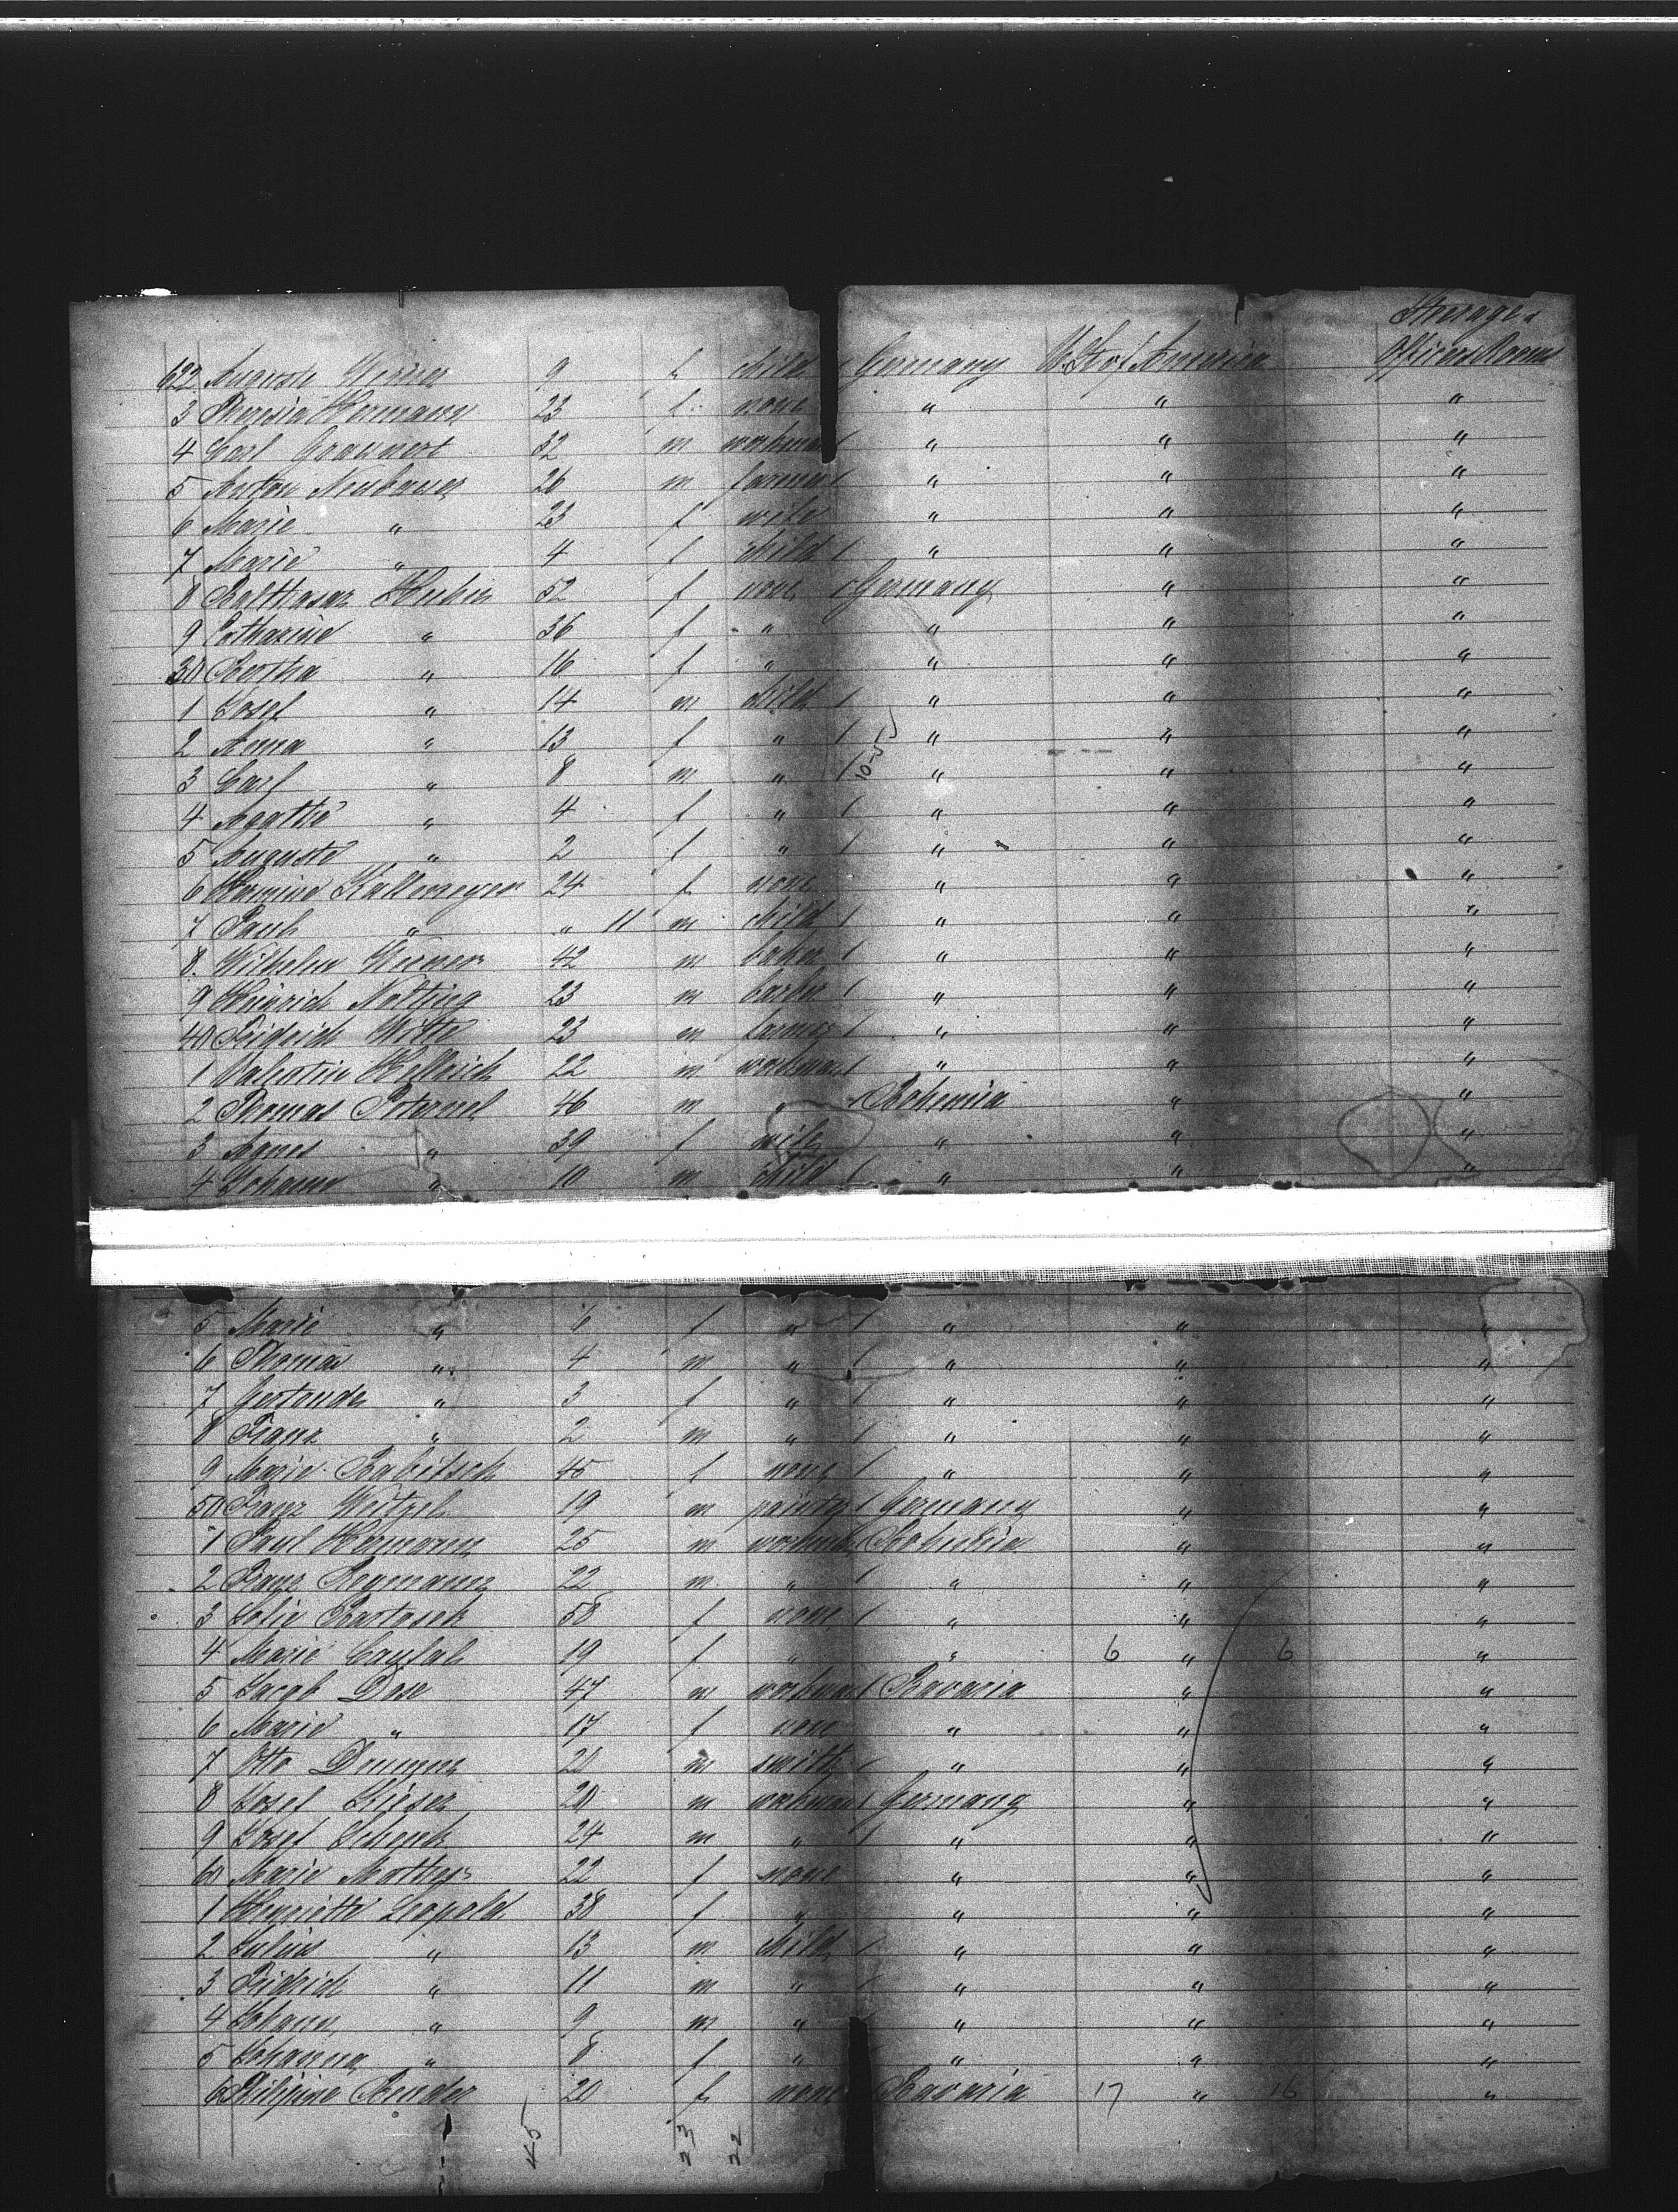 Steerage &
622 Auguste Werner 9 f child Germany U. St. of America Officers Rooms
3 Theresia Hermann 23 f none " " "
4 Carl Graunert 32 m workman " " "
5 Anton Neubauer 26 m farmer " " "
6 Marie " 23 f wife " " "
7 Marie " 4 f child " " "
8 Balthasar Huber 52 f none Germany " "
9 Catharine " 36 f " " " "
30 Bertha " 16 f " " " "
1 Josef " 14 m child " " "
2 Anna " 13 f " " " "
3 Carl " 8 m " 10-55 " " "
4 Agathe " 4 f " " " "
5 Auguste " 2 f " " " "
6 Hermine Kallemeyer 24 f none " " "
7 Paul " " 11 m child " " "
8 Wilhelm Werner 42 m baker " " "
9 Heinrich Nolting 23 m barber " " "
40 Fridrich Witte 23 m farmer " " "
1 Valentin Hellrich 22 m workman " " "
2 Thomas Peternel 46 m " Bohemia " "
3 Agnes " 39 f wife " " "
4 Johann " 10 m child " " "
5 Marie " 6 f " " " "
6 Thomas " 4 m " " " "
7 Gertrude " 3 f " " " "
8 Franz " 2 m " " " "
9 Marie Babitsch 45 f none " " "
50 Franz Weitzel 19 m painter Germany " "
1 Paul Hermann 25 m workman Bohemia " "
2 Franz Reymann 22 m " " " "
3 Sofie Bartasek 58 f none " " "
4 Marie 19 f " " 6 " 6 "
5 Jacob Dose 47 m workman Bavaria " "
6 Marie " 17 f none " " "
7 Otto 20 m smith " " "
8 Josef Kieser 20 m workman Germany " "
9 Josef Schenk 24 m " " " "
60 Marie 22 f none " " "
1 Henriette Leopold 38 f " " " "
2 Julius " 13 m child " " "
3 Fridrich " 11 m " " " "
4 Johann " 9 m " " " "
5 Johanna " 8 f " " " "
6 Philipine Bender 20 f none Bavaria 17 " 16 "
45 23 22